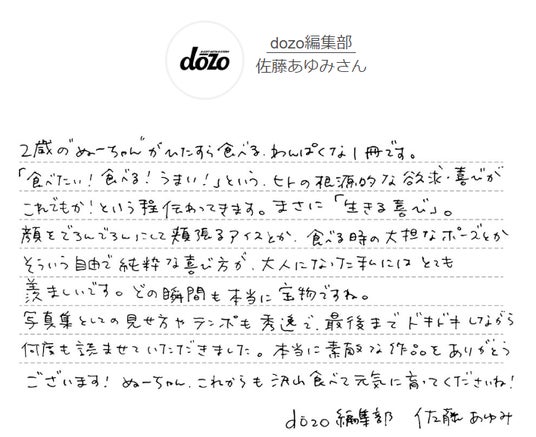 dozo
dozo編集部
佐藤あゆみさん
2歳の"ぬーちゃん"がひたすら食べる、わんぱくな1冊です。
「食べたい!食べる!うまい!」という、ヒトの根源的な欲求・喜びが
これでもか!という程伝わってきます。まさに「生きる喜び」。
顔をでろんでろんにして頬張るアイスとか、食べる時の大胆なポーズとか
そういう自由で純粋な喜び方が、大人になった私にはとても
羨ましいです。どの瞬間も本当に宝物ですね。
写真集としての見せ方やテンポも秀逸で、最後までドキドキしながら
何度も読ませていただきました。本当に素敵な作品をありがとう
ございます!ぬーちゃん、これからも沢山食べて元気に育ってくださいね!
dozo編集部 佐藤あゆみ